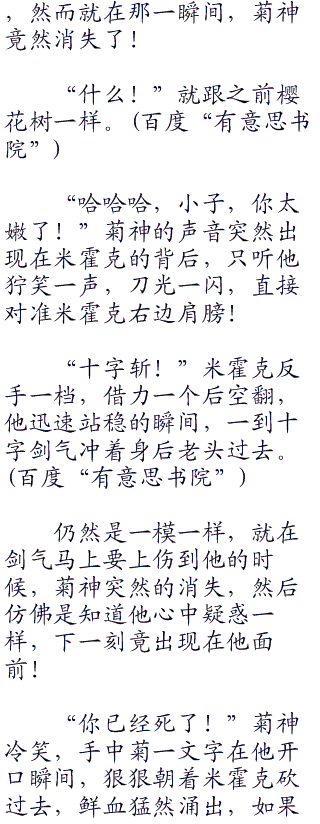 ，然而就在那一瞬间，菊神
竟然消失了！
“什么！”就跟之前樱
花树一样。(百度“有意思书
院”)
“哈哈哈，小子，你太
嫩了！”菊神的声音突然出
现在米霍克的背后，只听他
狞笑一声，刀光一闪，直接
对准米霍克右边肩膀！
“十字斩！”米霍克反
手一档，借力一个后空翻，
他迅速站稳的瞬间，一到十
字剑气冲着身后老头过去。
(百度“有意思书院”)
仍然是一模一样，就在
剑气马上要上伤到他的时
候，菊神突然的消失，然后
仿佛是知道他心中疑惑一
样，下一刻竟出现在他面
前！
“你已经死了！”菊神
冷笑，手中菊一文字在他开
口瞬间，狠狠朝着米霍克砍
过去，鲜血猛然涌出，如果